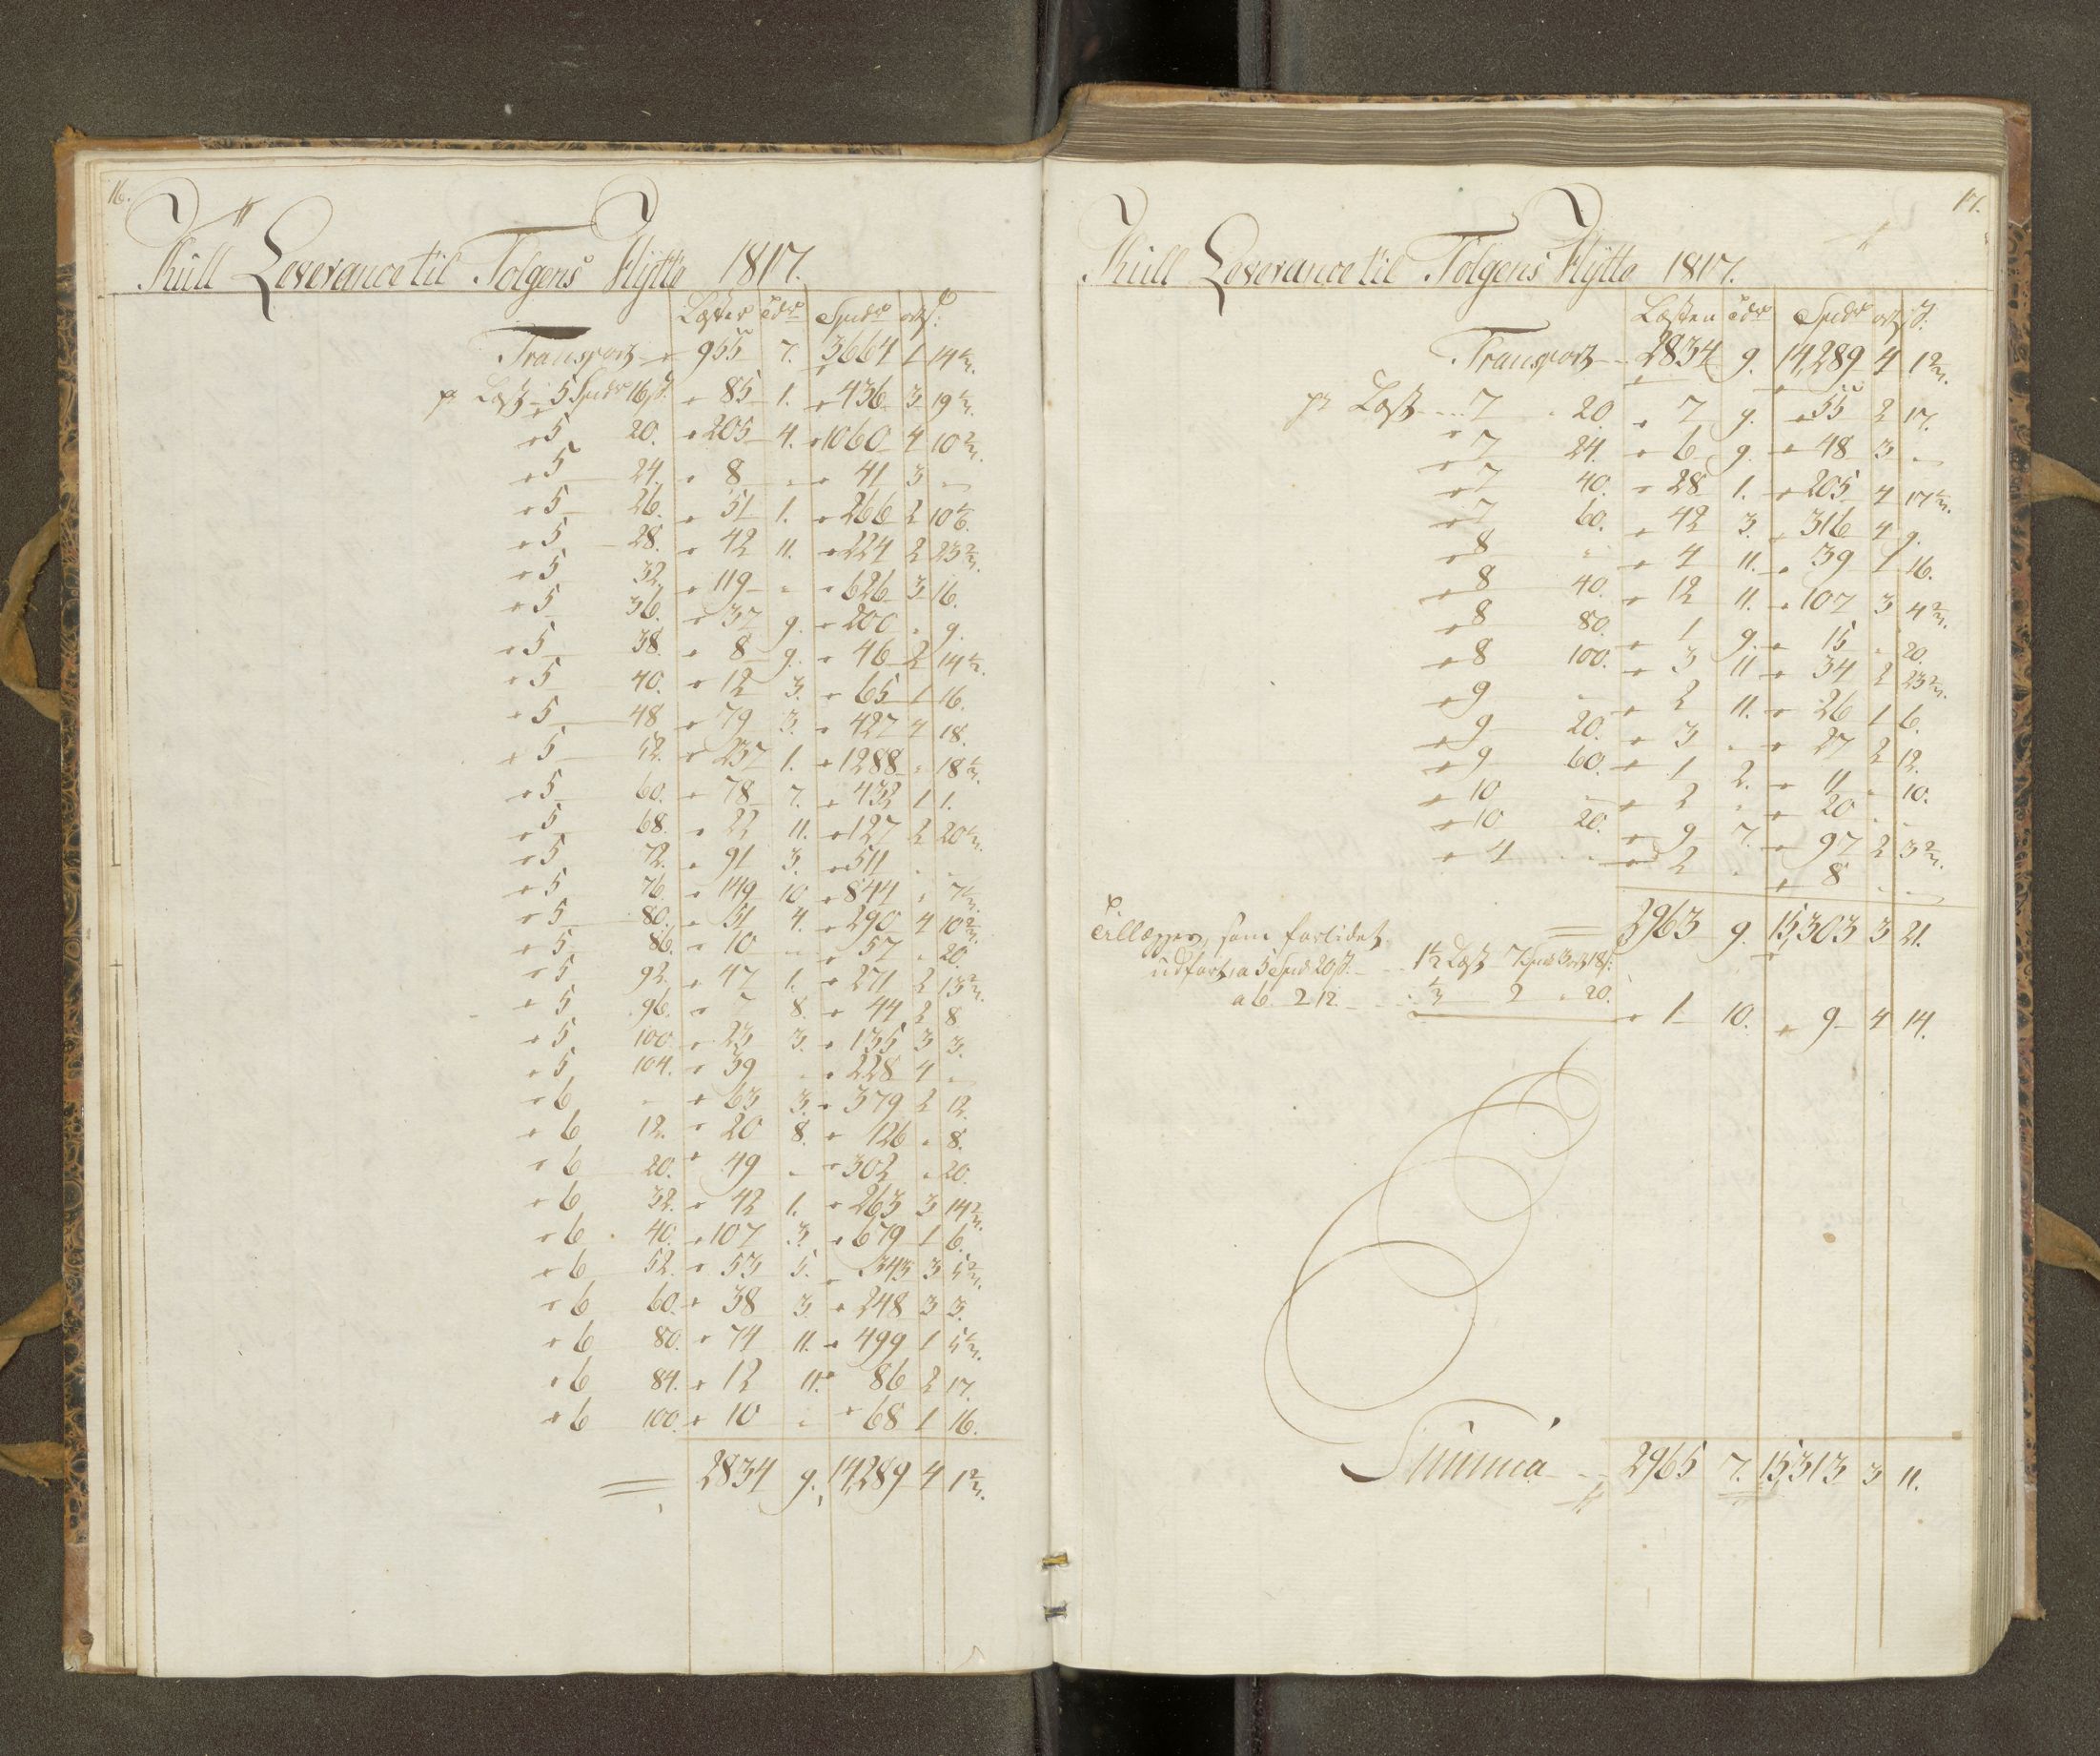 16.
Kull Leverance til Tolgens Hÿtte 1817.
Læster Tdr Spdr ort ß.
Transport 955 7. 3664 1 14 2/3.
pr Læst 5 Spdr 16 ß. 85 1. 436 3 19 1/3.
5 20. 205 4. 1060 4 10 2/3.
5 24. 8 " 41 3 "
5 26. 51 1. 266 2 10 1/6.
5 28. 42 11. 224 2 23 2/3.
5 32. 119 " 626 3 16.
5 36. 37 9. 200 " 9.
5 38. 8 9. 46 2 14 1/2.
5 40. 12 3. 65 1 16.
5 48 79 3. 427 4 18.
5 52. 237 1. 1288 " 18 1/3.
5 60. 78 7. 432 1 1.
5 68. 22 11. 127 2 20 1/3.
5 72. 91 3. 511 " "
5 76. 149 10 844 " 7 1/3.
5 80. 51 4. 290 4 10 2/3.
5 86. 10 " 57 " 20.
5 92. 47 1. 271 2 13 2/3.
5 96. 7 8. 44 2 8
5 100. 23 3. 135 3 3.
5 104. 39 " 228 4 "
6 " 63 3. 379 2 12.
6 12. 20 8. 126 " 8.
6 20. 49 " 302 " 20.
6 32. 42 1. 263 3 14 2/3.
6 40. 107 3. 679 1 6.
6 52. 53 5. 343 3 5 2/3.
6 60. 38 3. 248 3 3.
6 80. 74 11. 499 1 5 1/3.
6 84. 12 11. 86 2 17.
6 100. 10 " 68 1 16.
2834 9. 14,289 4 1 2/3.
17.
Kull Leverance til Tolgens Hÿtte 1817.
Læsten Tdr Spdr ort ß.
Transport 2834 9. 14,289 4 1 2/3.
pr Læst 7 20. 7 9. 55 2 17.
7 24. 6 9. 48 3 "
7 40. 28 1. 205 4 17 1/3.
7 60. 42 3. 316 4 9.
8 " 4 11. 39 1 16.
8 40. 12 11. 107 3 4 2/3.
8 80. 1 9. 15 " 20.
8 100. 3 11 34 2 23 2/3.
9 " 2 11. 26 1 6.
9 20. 3 " 27 2 12.
9 60. 1 2. 11 " 10.
10 " 2 " 20 " "
10 20. 9 7. 97 2 3 2/3.
4 " 2 " 8 " "
2963 9. 15,303 3 21.
Tillægges, som forlidet
udført, a 5 Spd 20 ß. 1 1/2 Læst 7 Spd 3 ort 18 ß:
a 6 2 12. 1/3 2 " 20.
1 10. 9 4 14.
Summa 2965 7. 15,313 3 11.